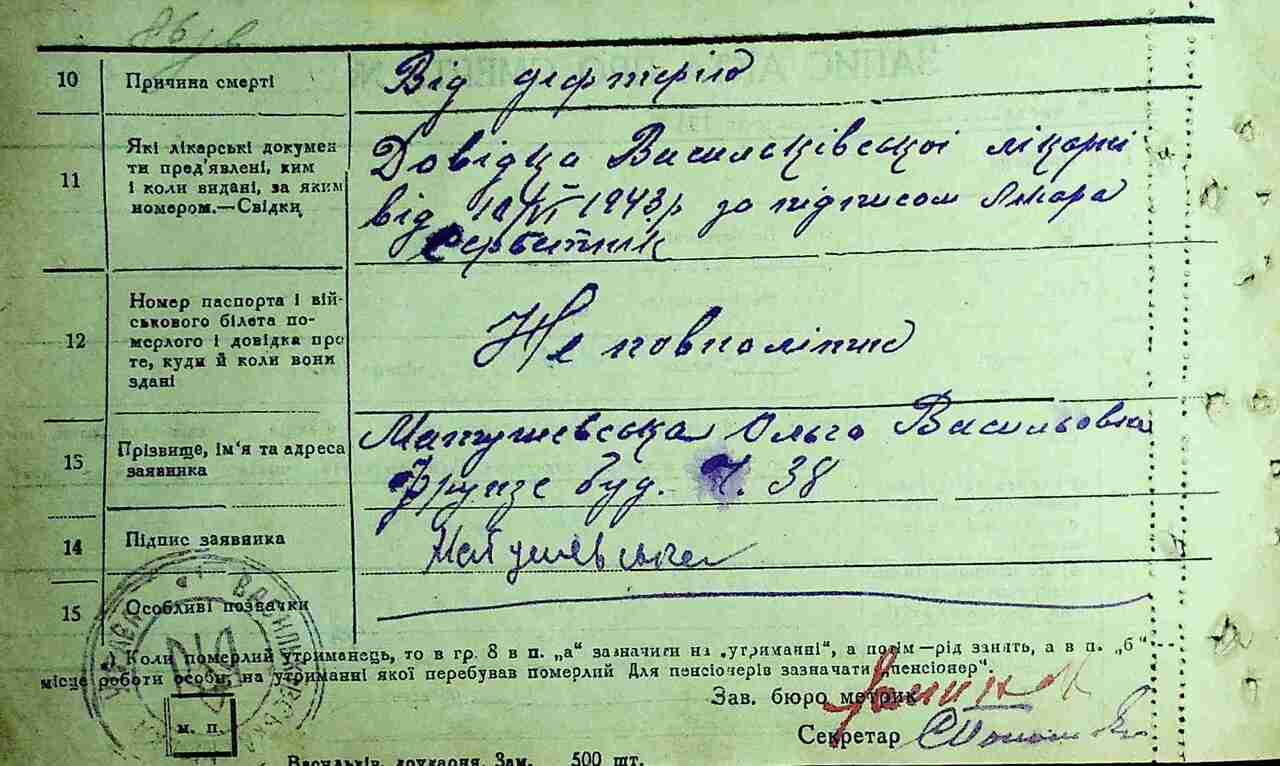 10 Причина смерті Від дифтерії
11 Які лікарські докумен
ти пред'явлені, ким
і коли видані, за яким
номером.—Свідки
Довідка Васильківської лікарні
від 1943р за підписом лікара
12 Номер паспорта і вій-
ськового білета по-
мерлого і довідка про
те, куди й коли вони
здані
Не повноліттє
13 Прізвище, ім'я та адреса
заявника
Матушевська Ольга Васильовна
Фрунзе буд. Ч. 38
14 Підпис заявника Матушевська
15 Особливі позначки
Коли померлий утриманець, то в гр. 8 в п. „а" зазначити на „утриманні", а потім—рід занять, а в п. „б"
місце роботи особи, на утриманні якої перебував померлий Для пенсіонерів зазначати „пенсіонер".
Зав. бюро метрик
м. п.
Секретар
Васильків, друкарня. Зам. 500 шт.